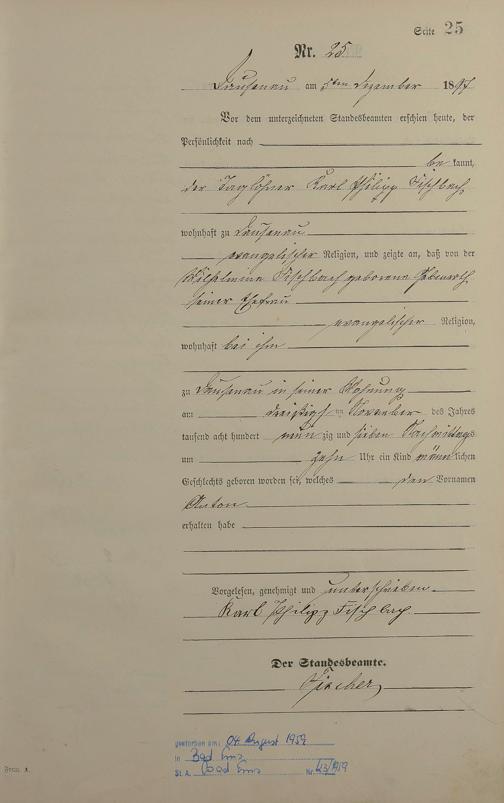 Seite 25
Nr. 25
Dausenau am 5ten Dezember 1897
Vor dem unterzeichneten Standesbeamten erschien heute, der
Persönlichkeit nach
be kannt,
der Taglöhner Karl Philipp Fischbach,
wohnhaft zu Dausenau
evangelischer Religion, und zeigte an, daß von der
Wilhelmine Fischbach geborene
seiner Ehefrau
evangelischer Religion,
wohnhaft bei ihm
zu Dausenau in seiner Wohnung
am dreißigsten November des Jahres
tausend acht hundert neun zig und sieben Nachmittags
um zehn Uhr ein Kind männ lichen
Geschlechts geboren worden sei, welches den Vornamen
Anton
erhalten habe
Vorgelesen, genehmigt und unterschrieben
Karl Philipp Fischbach
Der Standesbeamte.
Fischer
gestorben am: 04. August 1959
in Bad Ems
St. A. Bad Ems Nr. 43/1959
Form. A.